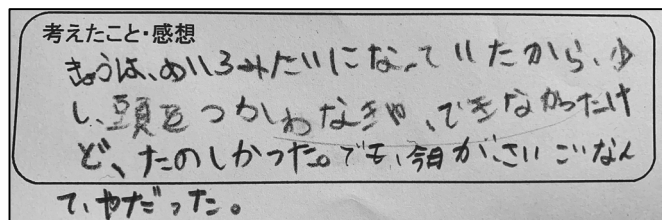 考えたこと・感想
きょうは、めいろみたいになっていたから、少
し、頭をつかわなきゃ、できなかったけ
ど、たのしかった。でも、今日が、さいごなん
て、やだった。